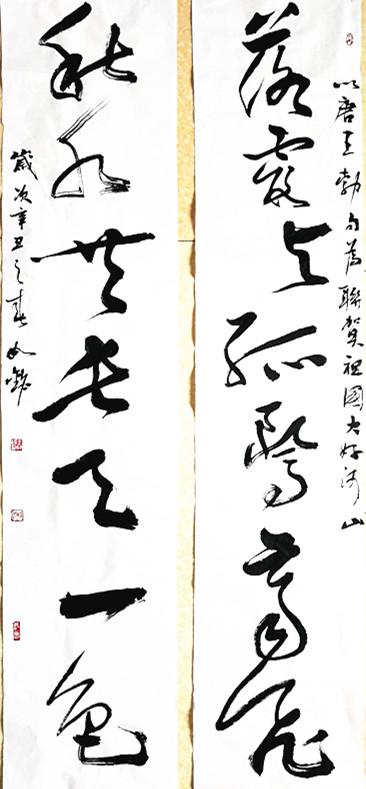 以唐王勃句為聯賀祖國大好河山
落霞与孤鶩齊飛
秋水共長天一色
歲次辛丑之春